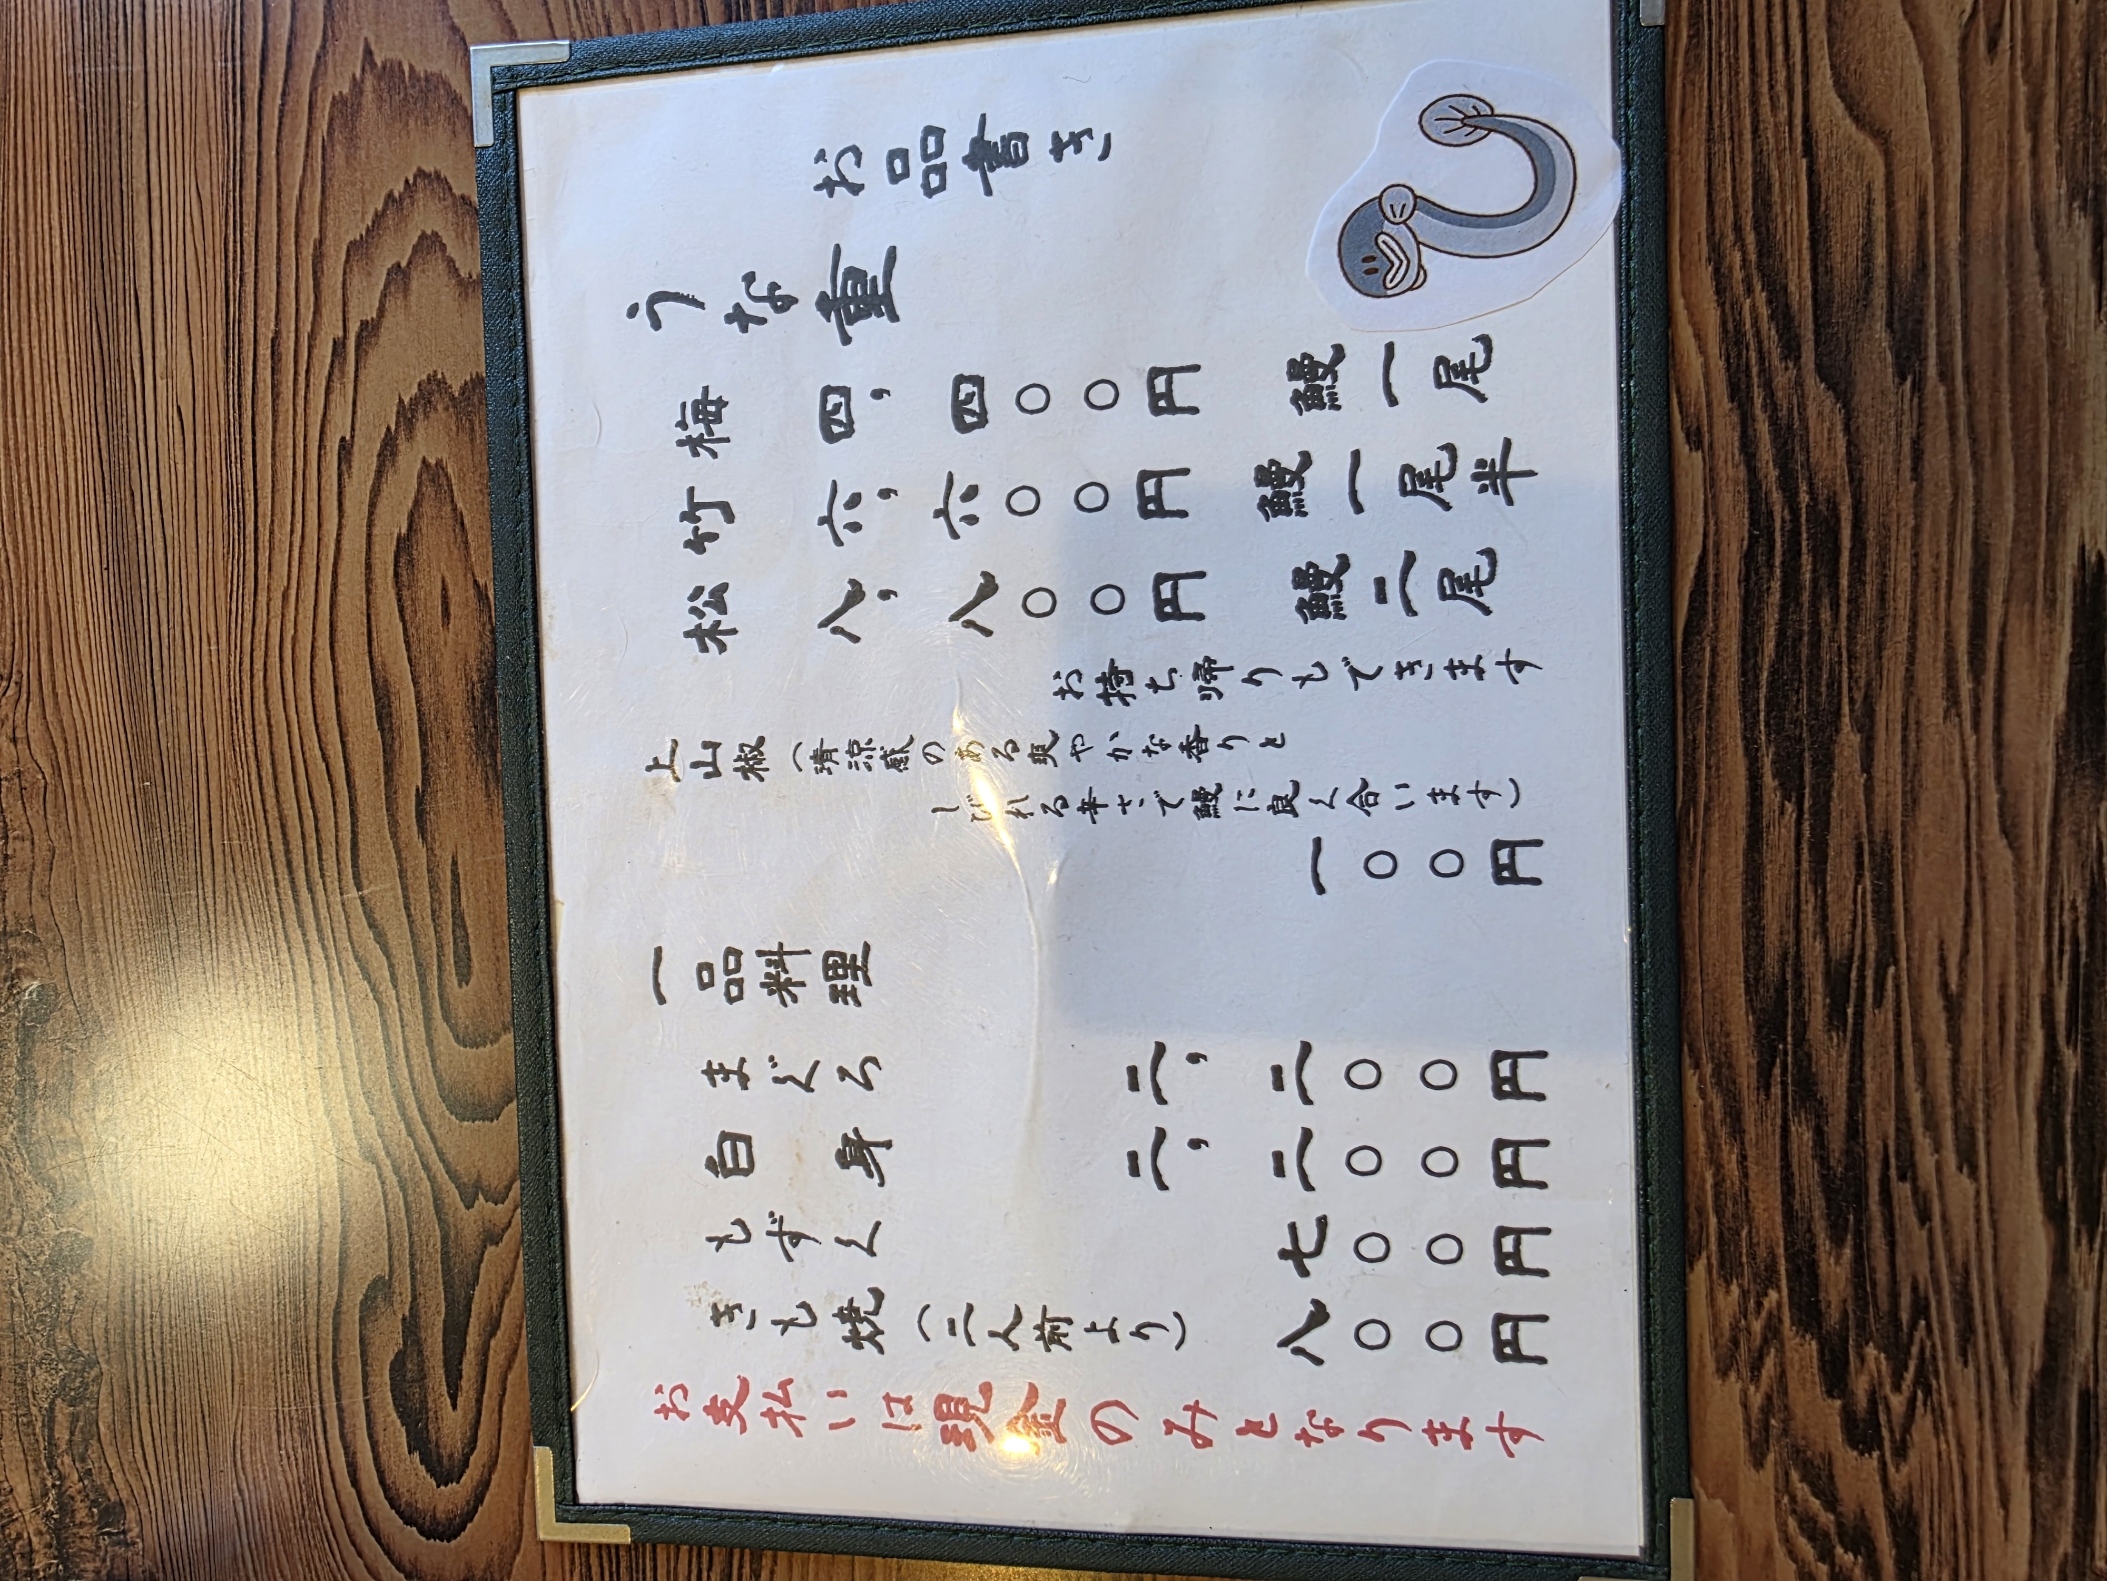 お品書き
うな重
梅 四,四〇〇円 鰻一尾
竹 六,六〇〇円 鰻一尾半
松 八,八〇〇円 鰻二尾
お持ち帰りもできます
上山椒(清涼感のある爽やかな香りと
しびれる辛さで鰻に良く合います)
一〇〇円
一品料理
まぐろ 二,二〇〇円
白身 二,二〇〇円
もずく 七〇〇円
きも焼(二人前より) 八〇〇円
お支払いは現金のみとなります